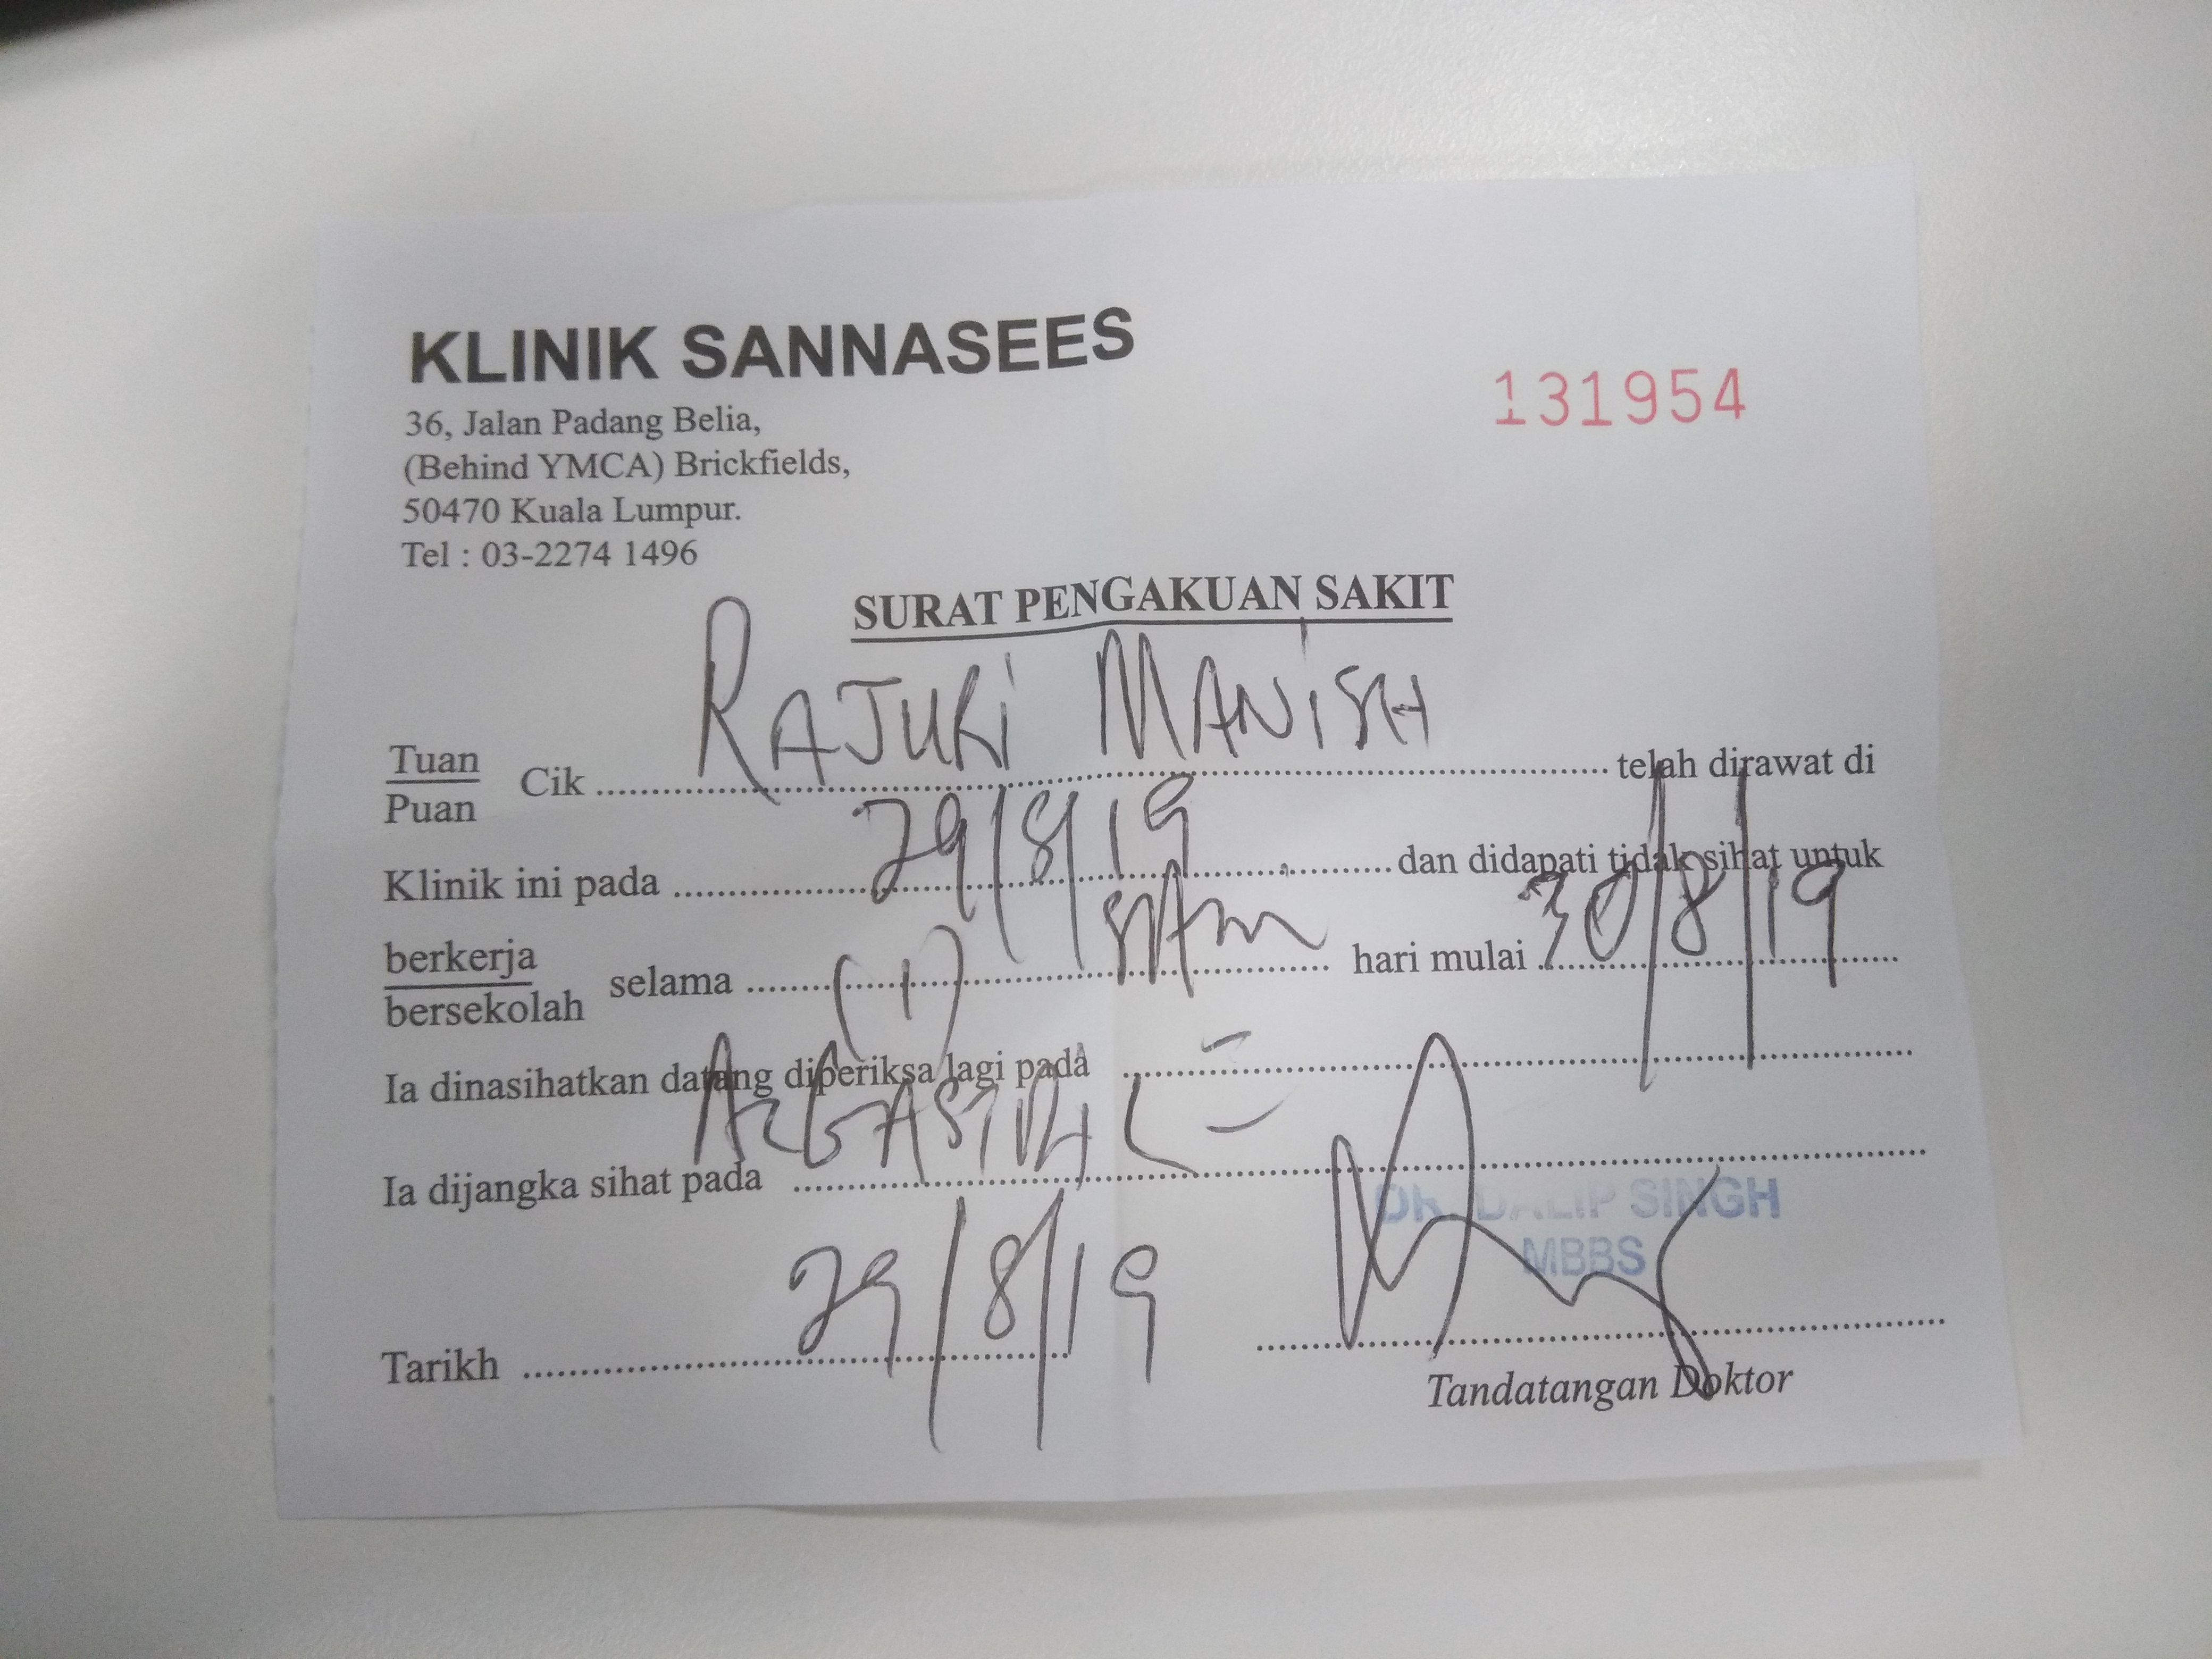 KLINIK SANNASEES
36, Jalan Padang Belia,
(Behind YMCA) Brickfields,
50470 Kuala Lumpur.
Tel : 03-2274 1496
131954
SURAT PENGAKUAN SAKIT
Tuan
Puan
Cik RAJUKI MANISH telah dirawat di
Klinik ini pada 29/8/19 dan didapati tidak sihat untuk
berkerja
bersekolah
selama (1) hari mulai 30/8/19
Ia dinasihatkan datang diperiksa lagi pada
Ia dijangka sihat pada
DR. DALIP SINGH
MBBS
Tarikh 29/8/19
Tandatangan Doktor